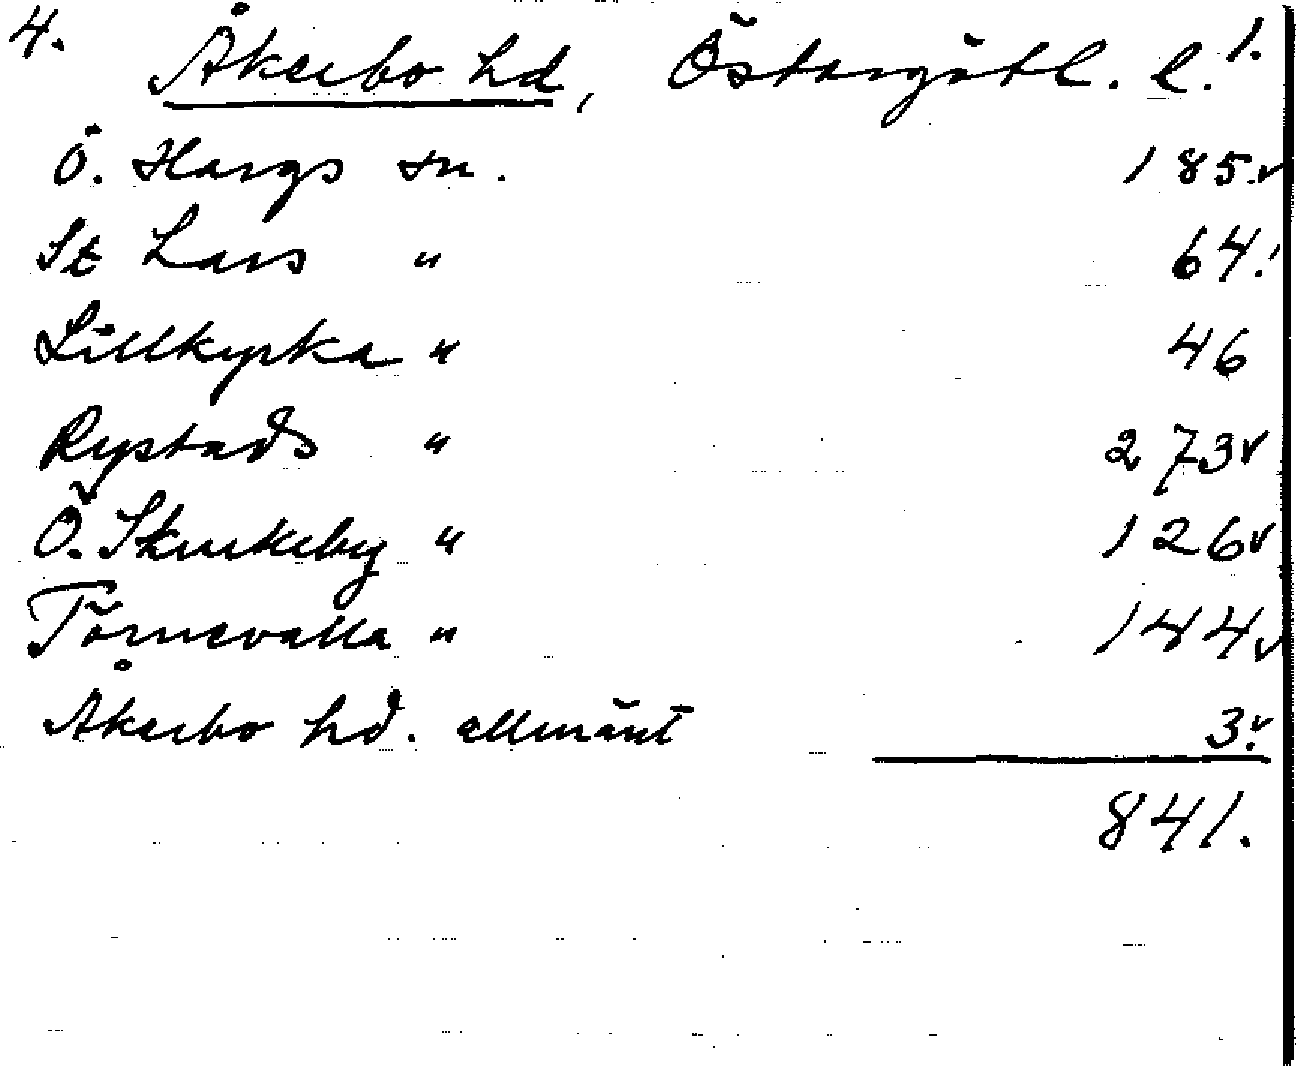 4. Åkerbo hd, Östergötl. l. 1.
Ö. Hargs sn. 185.v
St Lars " 64.
Lillkyrka " 46
Rystads " 273v
Ö. Skrukeby " 126v
Törnevalla " 144v
Åkerbo hd. allmänt 3.v
841.